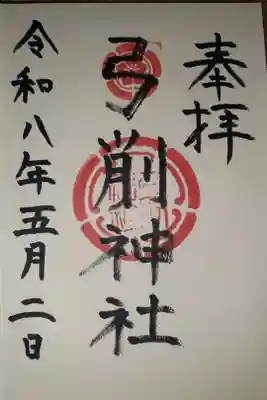 奉拝
弓削神社
令和八年五月二日